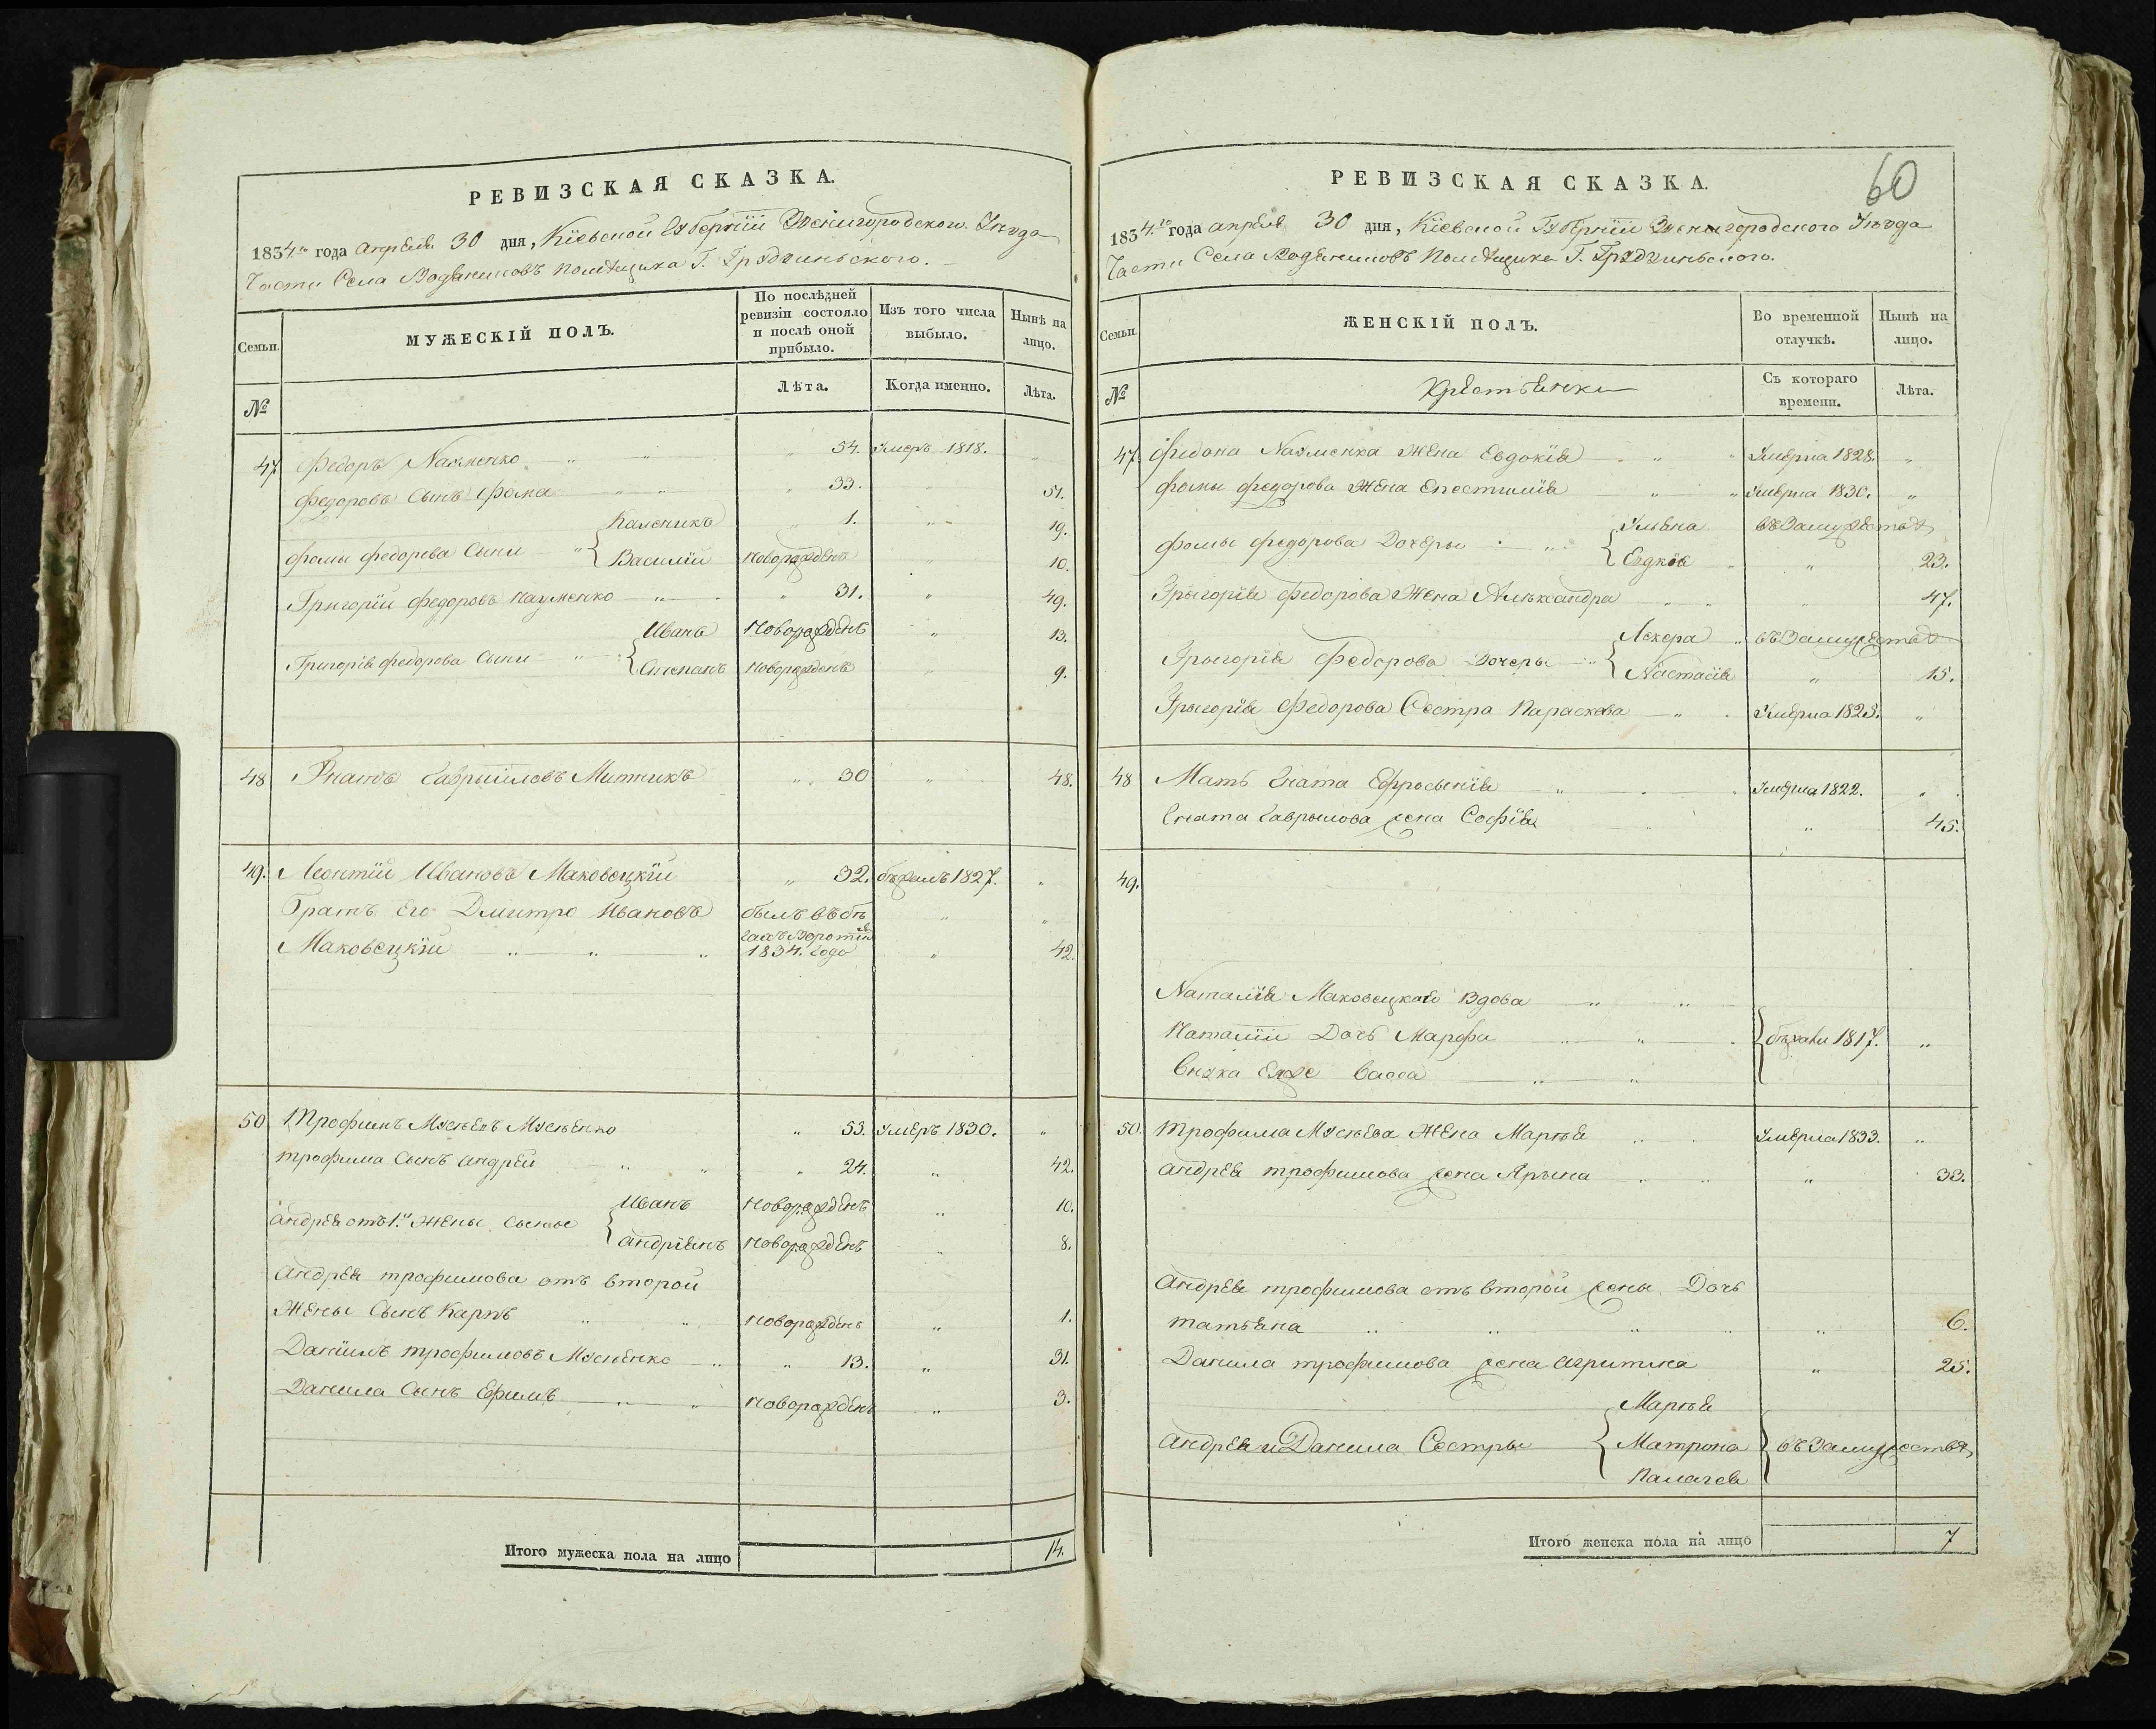 РЕВИЗСКАЯ СКАЗКА.
1834го года апреля 30 дня, Кіевской Губерніи Звенигородского Уезда
Части Села Водяниковъ помещика Г. Грудзинъского.
Семьи.
МУЖЕСКІЙ ПОЛЪ.
По послѣдней ревизіи состояло и послѣ оной прибыло.
Изъ того числа выбыло.
Нынѣ на лицо.
№
Лѣта.
Когда именно.
Лѣта.
47. Федоръ Науменко " " " 54. Умеръ 1818. "
Федоровъ Сынъ Фома " " " 33. " 51.
Фомы Федорова Сыни " { Каленикъ " 1. " 19.
Василій новорожденъ " 10.
Григорій Федоровъ Науменко " " 31. " 49.
Григорія Федорова Сыни " { Иванъ новорожденъ " 13.
Степанъ новорожденъ " 9.
48 Гнатъ Гаврыловъ Митникъ " 30 " 48.
49. Леонтій Ивановъ Маковецкій " 32. бежалъ 1827. "
Братъ Его Дмитро Ивановъ былъ въ бе " "
гахъ Воротился
Маковецкій " " " 1834. Года " 42.
50 Трофимъ Мусѣевъ Мусѣенко " 53. Умеръ 1830. "
трофима Сынъ андрей " " " 24. " 42.
андрея отъ 1й Жены Сыны { Иванъ новорожденъ " 10.
андріянъ новорожденъ " 8.
андрея трофимова отъ второй
Жены Сынъ Карпъ " " новорожденъ " 1.
Даніилъ трофимовъ Мусѣенко " " 13. " 31.
Данила Сынъ Ефимъ " " новорожденъ " 3.
Итого мужеска пола на лицо 14.
60
РЕВИЗСКАЯ СКАЗКА.
1834го года апреля 30 дня, Кіевской Губерніи Звенигородского Уезда
Части Села Водяниковъ помещика Г. Грудзинъского.
Семьи.
ЖЕНСКІЙ ПОЛЪ.
Во временной отлучкѣ.
Нынѣ на лицо.
№
Крестьянки
Съ котораго времени.
Лѣта.
47. Федора Науменка Жена Евдокія " " Умерла 1828. "
Фомы Федорова Жена " " Умерла 1830. "
Фомы Федорова Дочеры " { Ульяна въ Замужестве
Евдкія " " 23.
Грыгорія Федорова Жена Алѣксандра " " " 47.
Грыгорія Федорова Дочеры " { въ Замужестве
Настасія " 15.
Грыгорія Федорова Сестра Параскева " Умерла 1825. "
48 Мать Гната Ефросынія " Умерла 1822. "
Гната Гаврылова жена Софія " 45.
49.
Наталія Маковецкаго Вдова " "
Наталіи Дочь Марфа " " } бежали 1817. "
Внука Еяже Васса " "
50. Трофима Мусѣева Жена Марѣя " Умерла 1833. "
андрея трофимова жена Арына " " " 33.
андрея трофимова отъ второй жены Дочь
татьяна " " " " 6.
Данила трофимова жена " 25.
андрея и Данила Сестры { Марѣя
Матрона } въ Замужестве
Палагея
Итого женска пола на лицо 7